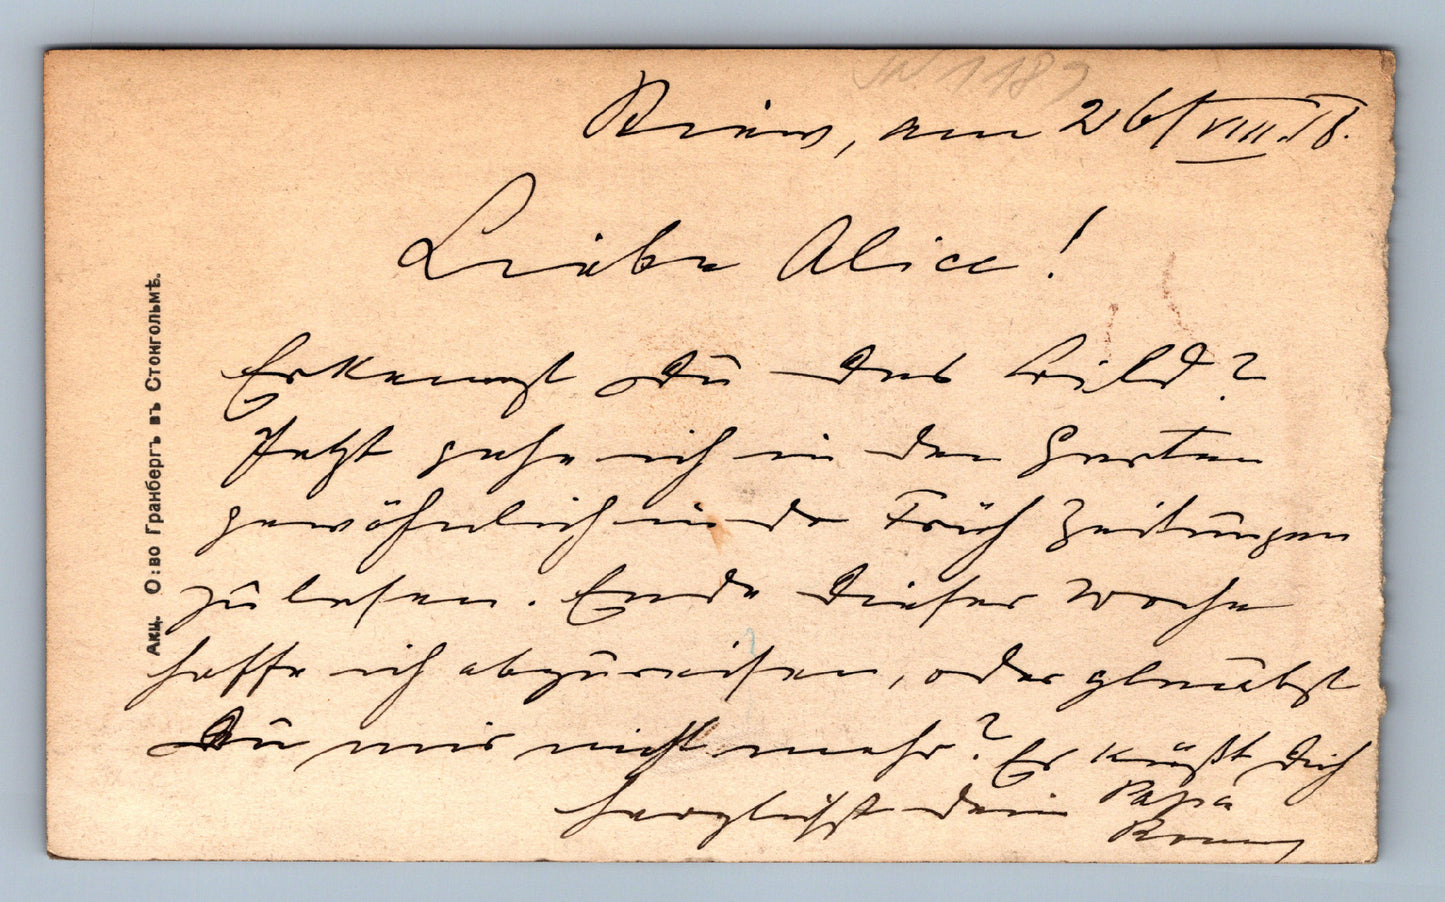 N. 1189
Kiew, am 26/VIII.18.
Liebe Alice!
Erkennst Du das Bild?
Jetzt gehe ich in den Garten
gewöhnlich in der Früh Zeitungen
zu lesen. Ende dieser Woche
hoffe ich abzureisen, oder glaubst
Du mir nicht mehr? Es küßt Dich
herzlichst dein Papa
Акц. О:во Гранбергъ въ Стокгольмѣ.